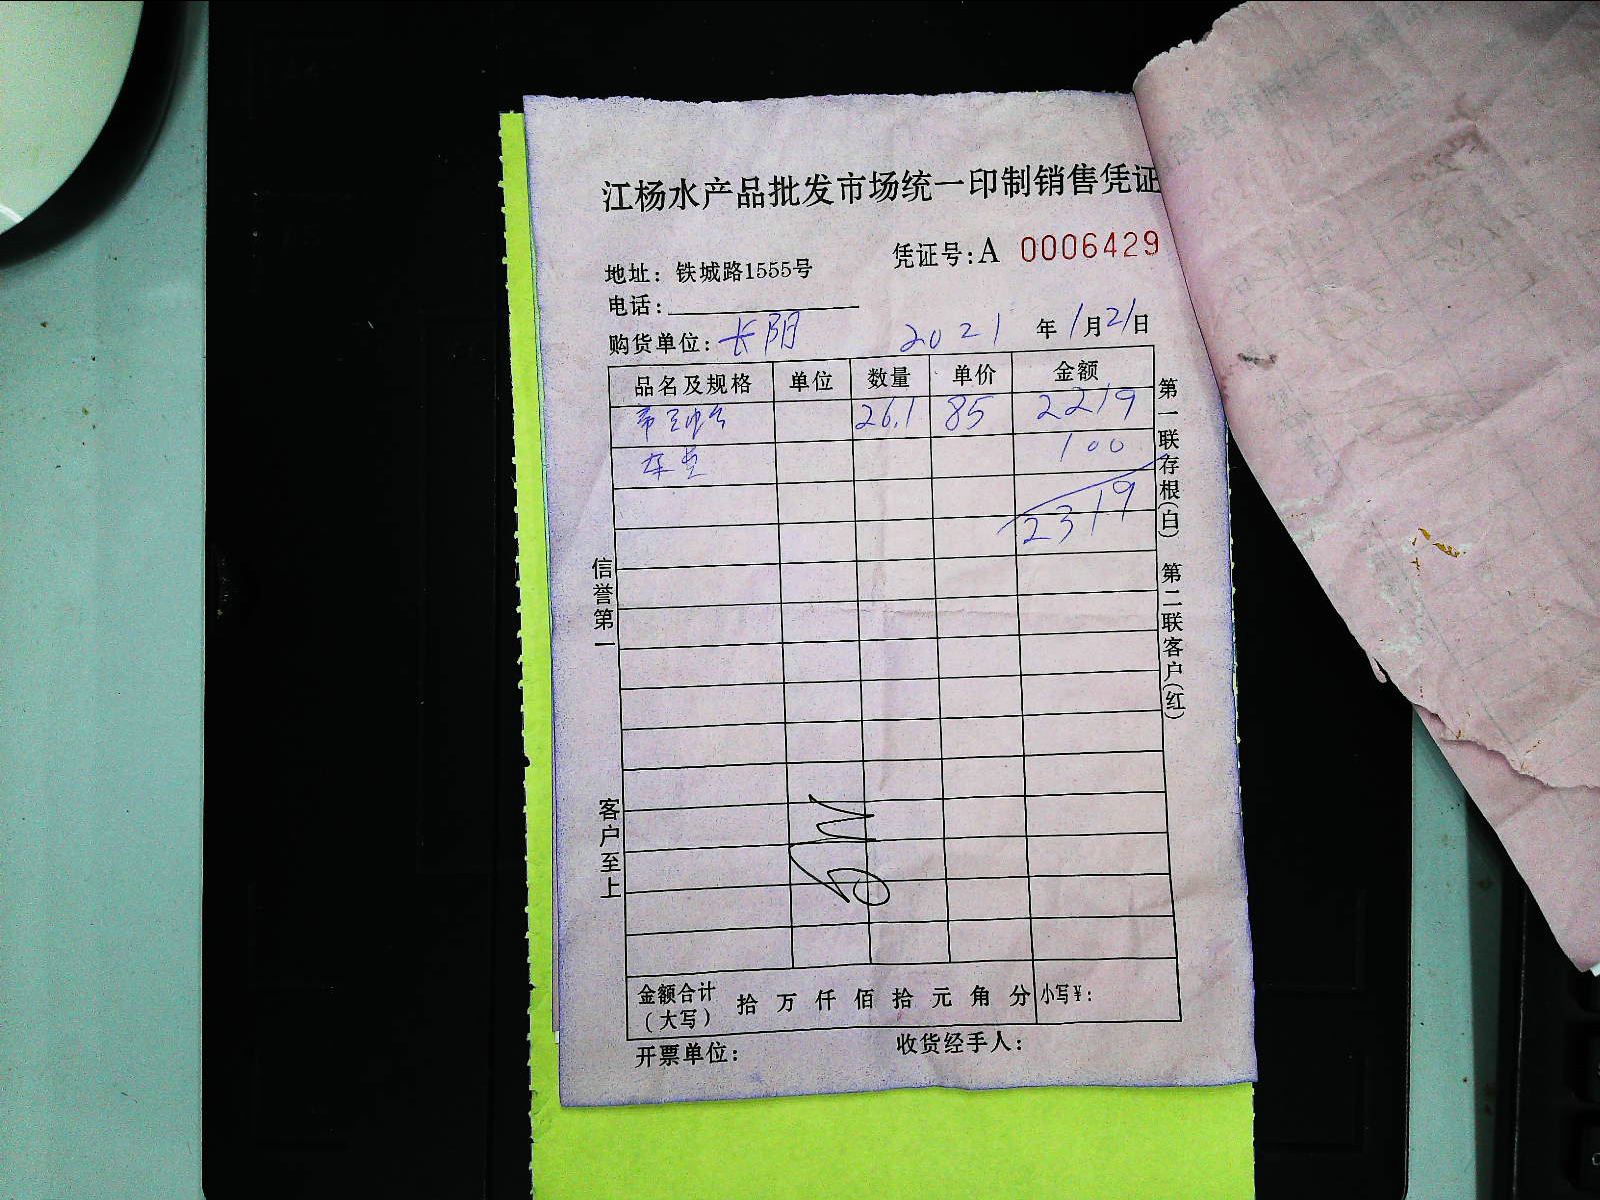 江杨水产品批发市场统一印制销售凭证
凭证号:A 0006429
地址: 铁城路1555号
电话:
购货单位: 长阴 2021 年 1 月 21 日
品名及规格 单位 数量 单价 金额
26.1 85 2219
车 100
2319
信誉第一
客户至上
第一联存根(白) 第二联客户(红)
金额合计(大写) 拾 万 仟 佰 拾 元 角 分 小写¥:
开票单位: 收货经手人: